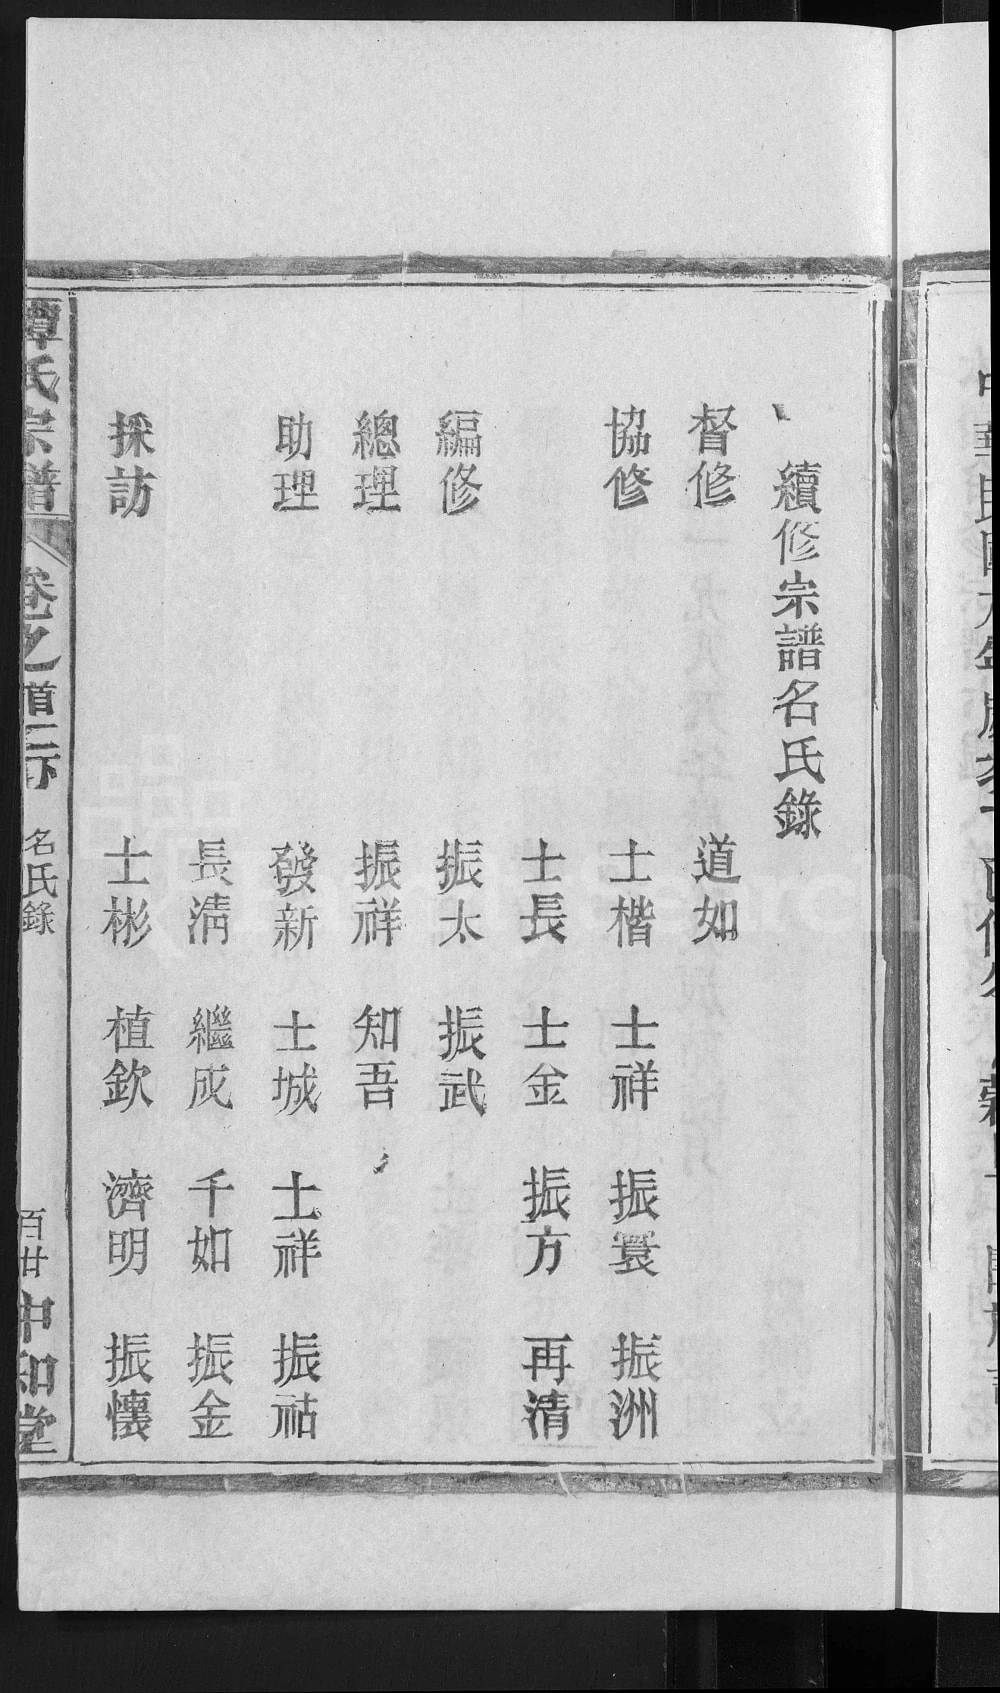 續修宗譜名氏錄
督修 道如
協修 士楷 士祥 振寰 振洲
士長 士金 振方 再清
編修 振太 振武
總理 振祥 知吾
助理 發新 士城 士祥 振祜
長清 繼成 千如 振金
採訪 士彬 植欽 濟明 振懷
譚氏宗譜 卷之首 名氏錄 百廿 中和堂